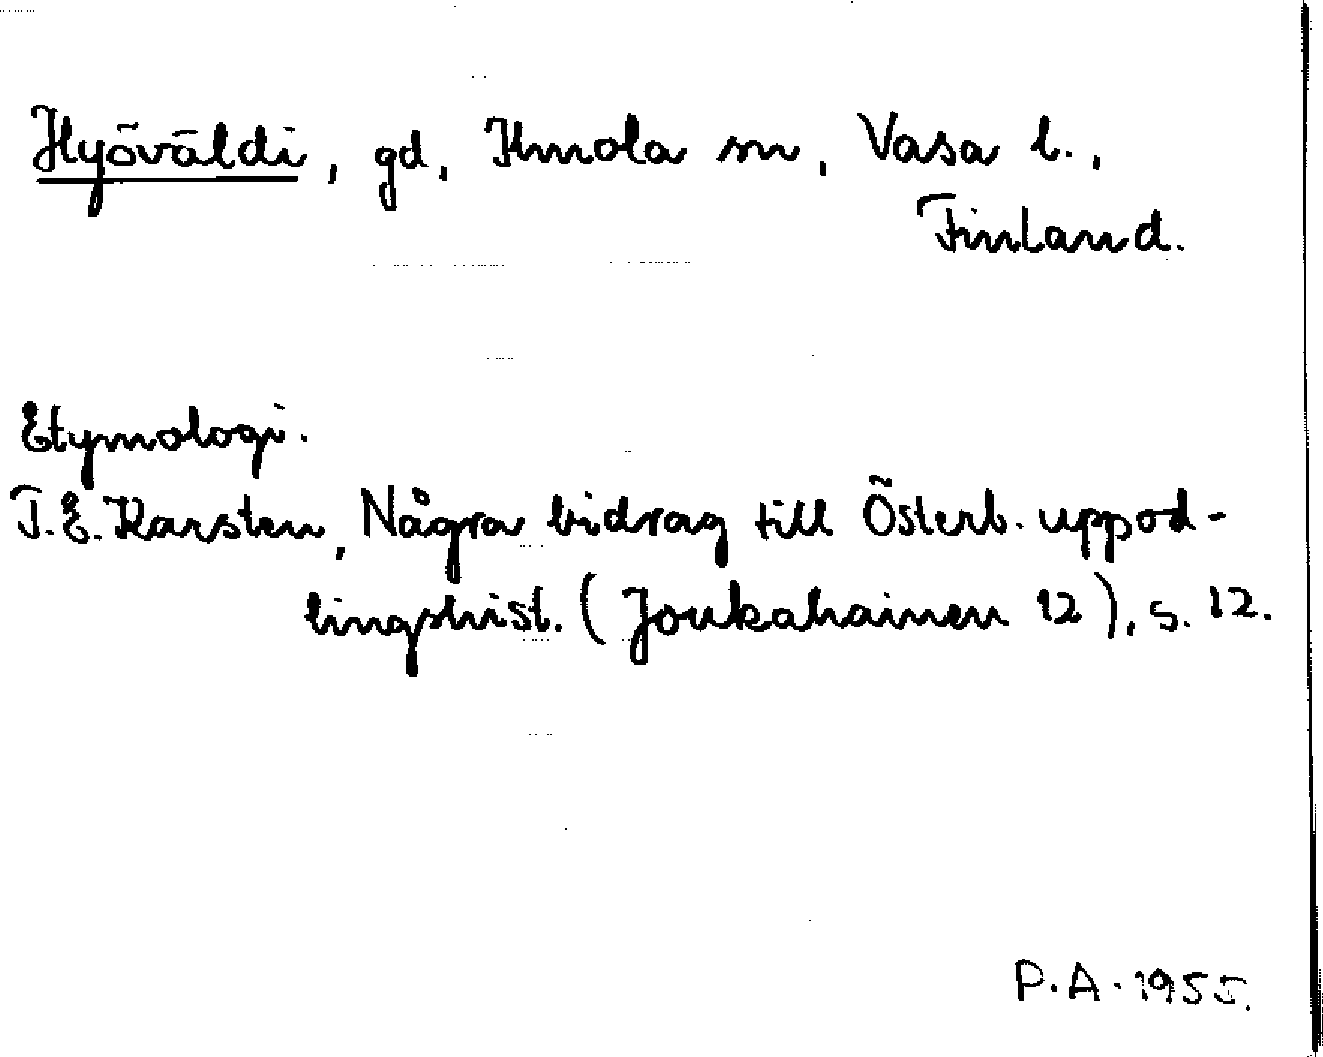 Hyöväldi, gd, Ilmola sn, Vasa l.,
Finland.
Etymologi.
T.E. Karsten, Några bidrag till Österb. uppod-
lingshist. (Joukahainen 12), s. 12.
P.A. 1955.